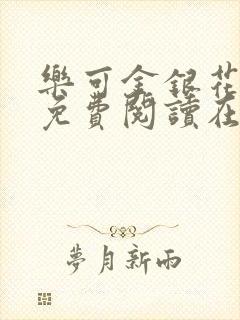 樂可金銀花
免費閱讀在
夢月新雨